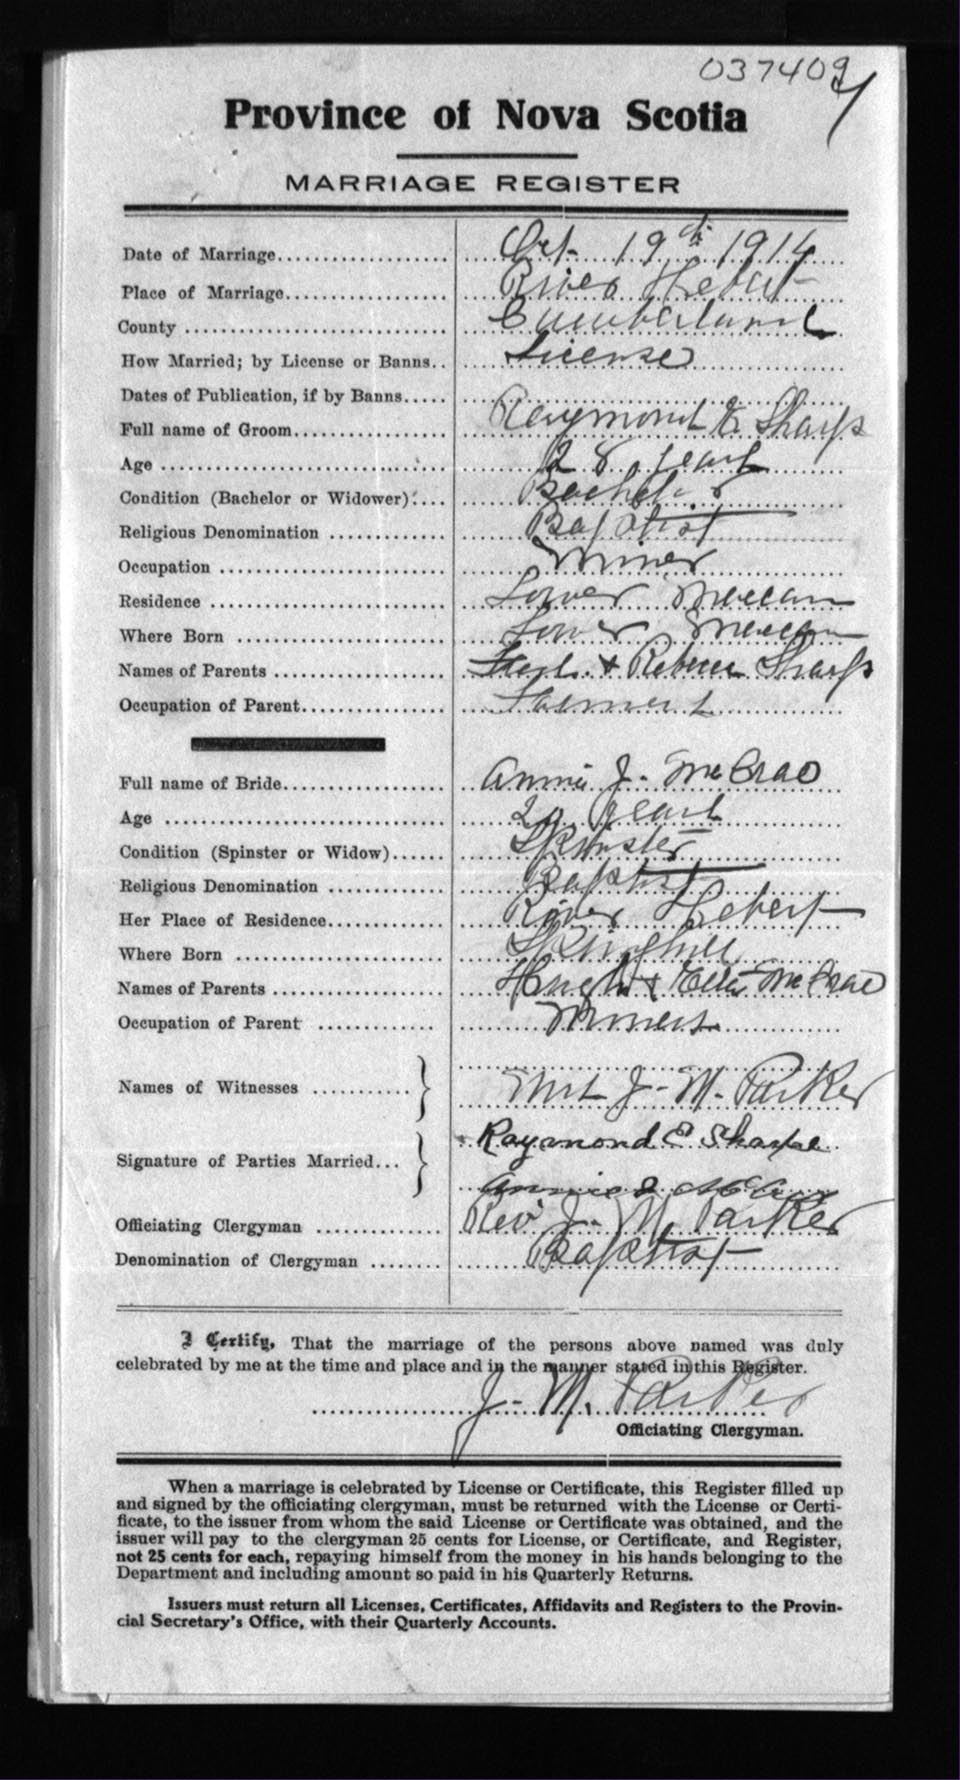 037409
Province of Nova Scotia
MARRIAGE REGISTER
Date of Marriage Oct. 19th 1914
Place of Marriage River Hebert
County Cumberland
How Married; by License or Banns License
Dates of Publication, if by Banns
Full name of Groom Raymond E. Sharp
Age 28 years
Condition (Bachelor or Widower) Bachelor
Religious Denomination Baptist
Occupation Miner
Residence Lower Maccan
Where Born Lower Maccan
Names of Parents & Rebecca Sharp
Occupation of Parent
Full name of Bride Annie J. McCrae
Age years
Condition (Spinster or Widow) Spinster
Religious Denomination Baptist
Her Place of Residence River Hebert
Where Born Springhill
Names of Parents Hugh & Ella McCrae
Occupation of Parent Miners
Names of Witnesses Mrs J. M. Parker
Signature of Parties Married Raymond E Sharpe
Annie J
Officiating Clergyman Rev J. M. Parker
Denomination of Clergyman Baptist
I Certify, That the marriage of the persons above named was duly
celebrated by me at the time and place and in the manner stated in this Register.
J. M. Parker
Officiating Clergyman.
When a marriage is celebrated by License or Certificate, this Register filled up
and signed by the officiating clergyman, must be returned with the License or Certi-
ficate, to the issuer from whom the said License or Certificate was obtained, and the
issuer will pay to the clergyman 25 cents for License, or Certificate, and Register,
not 25 cents for each, repaying himself from the money in his hands belonging to the
Department and including amount so paid in his Quarterly Returns.
Issuers must return all Licenses, Certificates, Affidavits and Registers to the Provin-
cial Secretary's Office, with their Quarterly Accounts.